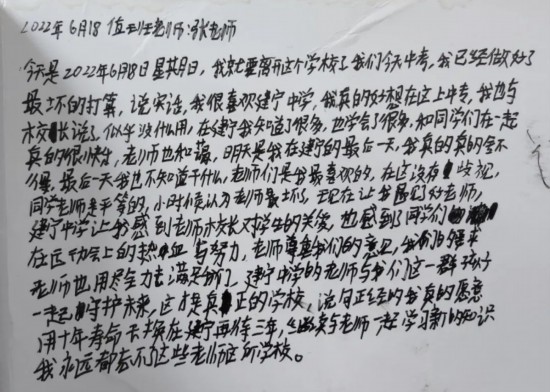 2022年6月18 值班老师:张老师
今天是2022年6月18日星期日,我就要离开这个学校了我们今天中考,我已经做好了
最坏的打算,说实话,我很喜欢建宁中学,我真的好想在这上中专,我也与
校长说了似乎没什么用,在建宁我知道了很多,也学会了很多,和同学们在一起
真的很快乐,老师也和蔼,明天是我在建宁的最后一天,我真的真的舍不
得,最后一天我也不知道干什么,老师们是我最喜欢的,在这没有歧视,
同学老师是平等的,小时候认为老师最坏了,现在让我遇见好老师,
建宁中学让我感到老师校长对学生的关爱,也感到同学们
在运动会上的热血与努力,老师尊重我们的意见,我们的
老师也用尽全力去满足我们,建宁中学的老师与我们这一群孩子
一起守护未来,这才是真正的学校,说句正经的我真的愿意
用十年寿命去换在建宁再待三年,继续与老师一起学习新的知识
我永远都忘不了这些老师这所学校。